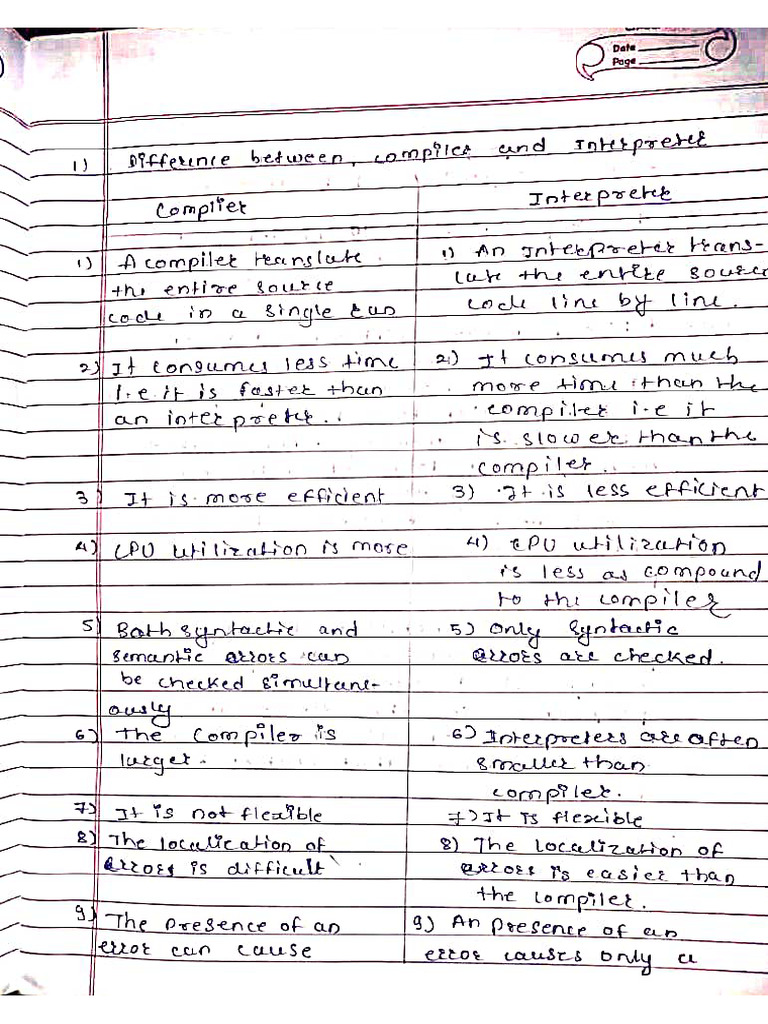 Date
Page
1) Difference between, compiler and Interpreter
Complier
Interpreter
1) A compiler translate
the entire source
code in a single run
2) It consumes less time
i.e it is faster than
an interpreter.
3) It is more efficient
4) CPU utilization is more
5) Both syntactic and
semantic errors can
be checked simultan-
ously
6) The compiler is
larger.
7) It is not flexible
8) The localication of
errors is difficult
9) The presence of an
error can cause
1) An Interpreter trans-
late the entire source
code line by line.
2) It consumes much
more time than the
compiler i.e it
is slower than the
compiler.
3) It is less efficient
4) CPU utilization
is less as compound
to the compiler
5) Only syntactic
errors are checked.
6) Interpreters are often
smaller than
compiler.
7) It is flexible
8) The localization of
errors is easier than
the compiler.
9) An presence of an
error causes only a